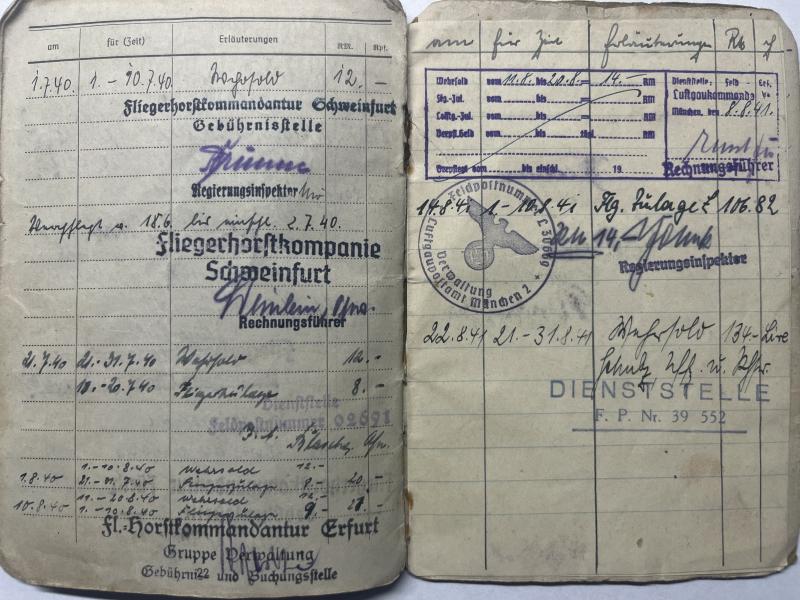 am für (Zeit) Erläuterungen RM. Rpf.
1.7.40. 1.-10.7.40. Wehrsold 12. -
Fliegerhorstkommandantur Schweinfurt
Gebührnisstelle
Regierungsinspektor
Verpflegt v. 18.6. bis einschl. 2.7.40.
Fliegerhorstkompanie
Schweinfurt
Rechnungsführer
21.7.40 21.-31.7.40 Wehrsold 12.-
10.-20.7.40 Fliegerzulage 8.-
Dienststelle
Feldpostnummer 02691
1.-10.8.40 Wehrsold 12.-
1.8.40 21.-31.7.40 Fliegerzulage 8.- 20.-
11.-20.8.40 Wehrsold 12.-
10.8.40 1.-10.8.40 Fliegerzulage 9.- 21.-
Fl.-Horstkommandantur Erfurt
Gruppe Verwaltung
Gebührni und Buchungsstelle
22
am für Zeit Erläuterungen
Wehrsold vom 11.8. bis 20.8.- 14.- RM
Flg.-Zul. vom bis RM
Luftg.-Zul. vom bis RM
Verpfl.Geld vom bis tägl. RM
Verpflegt vom bis einschl. 19
Dienststelle: Feld-
Luftgaukommando
München, den 8.8.41.
Rechnungsführer
Feldpostnummer L 30669
Verwaltung
Luftgaupostamt München 2
14.8.41 1.-10.8.41 Flg. Zulage 106.82
14.
Regierungsinspektor
22.8.41 21.-31.8.41 Wehrsold 134.- Lire
Uffz. u.
DIENSTSTELLE
F. P. Nr. 39 552